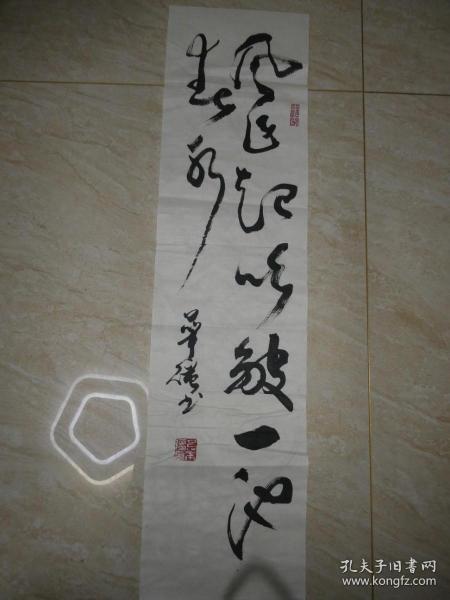 風乍起吹皺一池
春水
華德书
孔夫子旧书网
www.kongfz.com